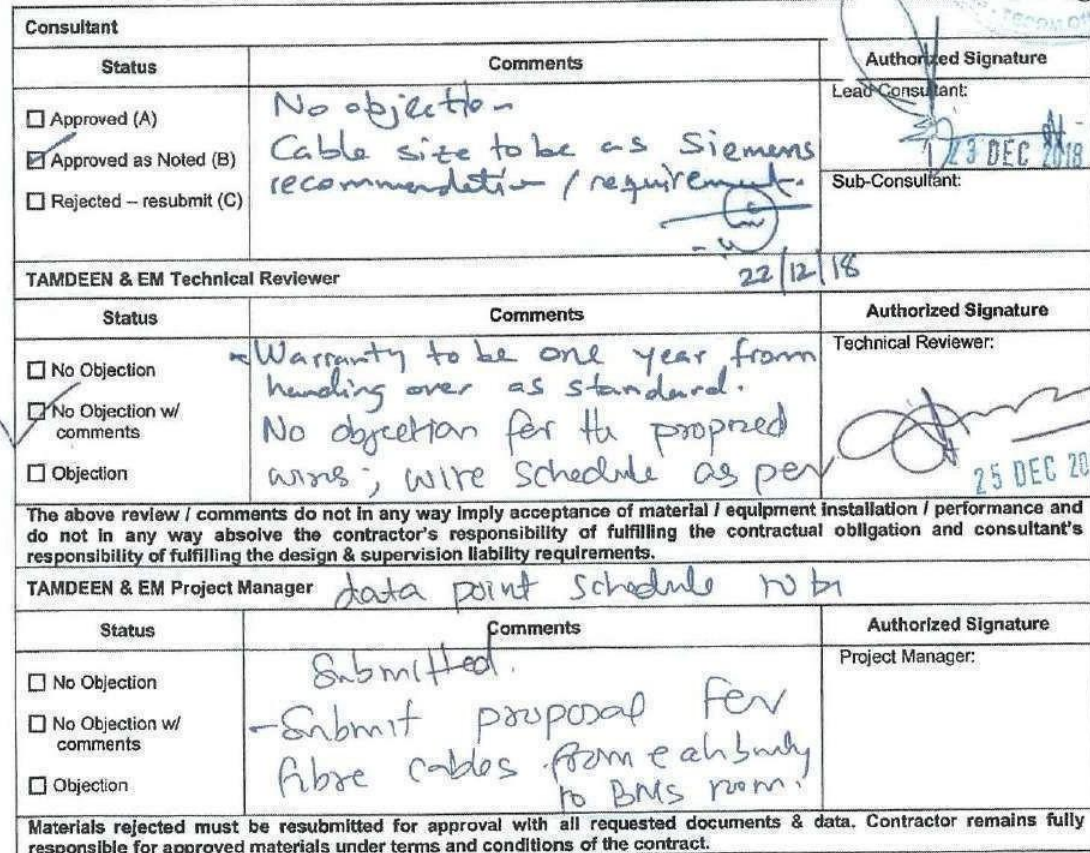 Consultant
Status
Comments
Authorized Signature
☐ Approved (A)
☑ Approved as Noted (B)
☐ Rejected – resubmit (C)
No objection
Cable size to be as Siemens
recommendation / requirement.
22/12/18
Lead Consultant:
23 DEC 2018
Sub-Consultant:
TAMDEEN & EM Technical Reviewer
Status
Comments
Authorized Signature
☐ No Objection
☑ No Objection w/
comments
☐ Objection
Warranty to be one year from
handing over as standard.
No objection for the proposed
wires; wire schedule as per
Technical Reviewer:
25 DEC 20
The above review / comments do not in any way imply acceptance of material / equipment installation / performance and
do not in any way absolve the contractor's responsibility of fulfilling the contractual obligation and consultant's
responsibility of fulfilling the design & supervision liability requirements.
TAMDEEN & EM Project Manager
data point schedule to be
Status
Comments
Authorized Signature
☐ No Objection
☐ No Objection w/
comments
☐ Objection
Submitted.
- Submit proposal for
fibre cables from each
to BMS room.
Project Manager:
Materials rejected must be resubmitted for approval with all requested documents & data. Contractor remains fully
responsible for approved materials under terms and conditions of the contract.